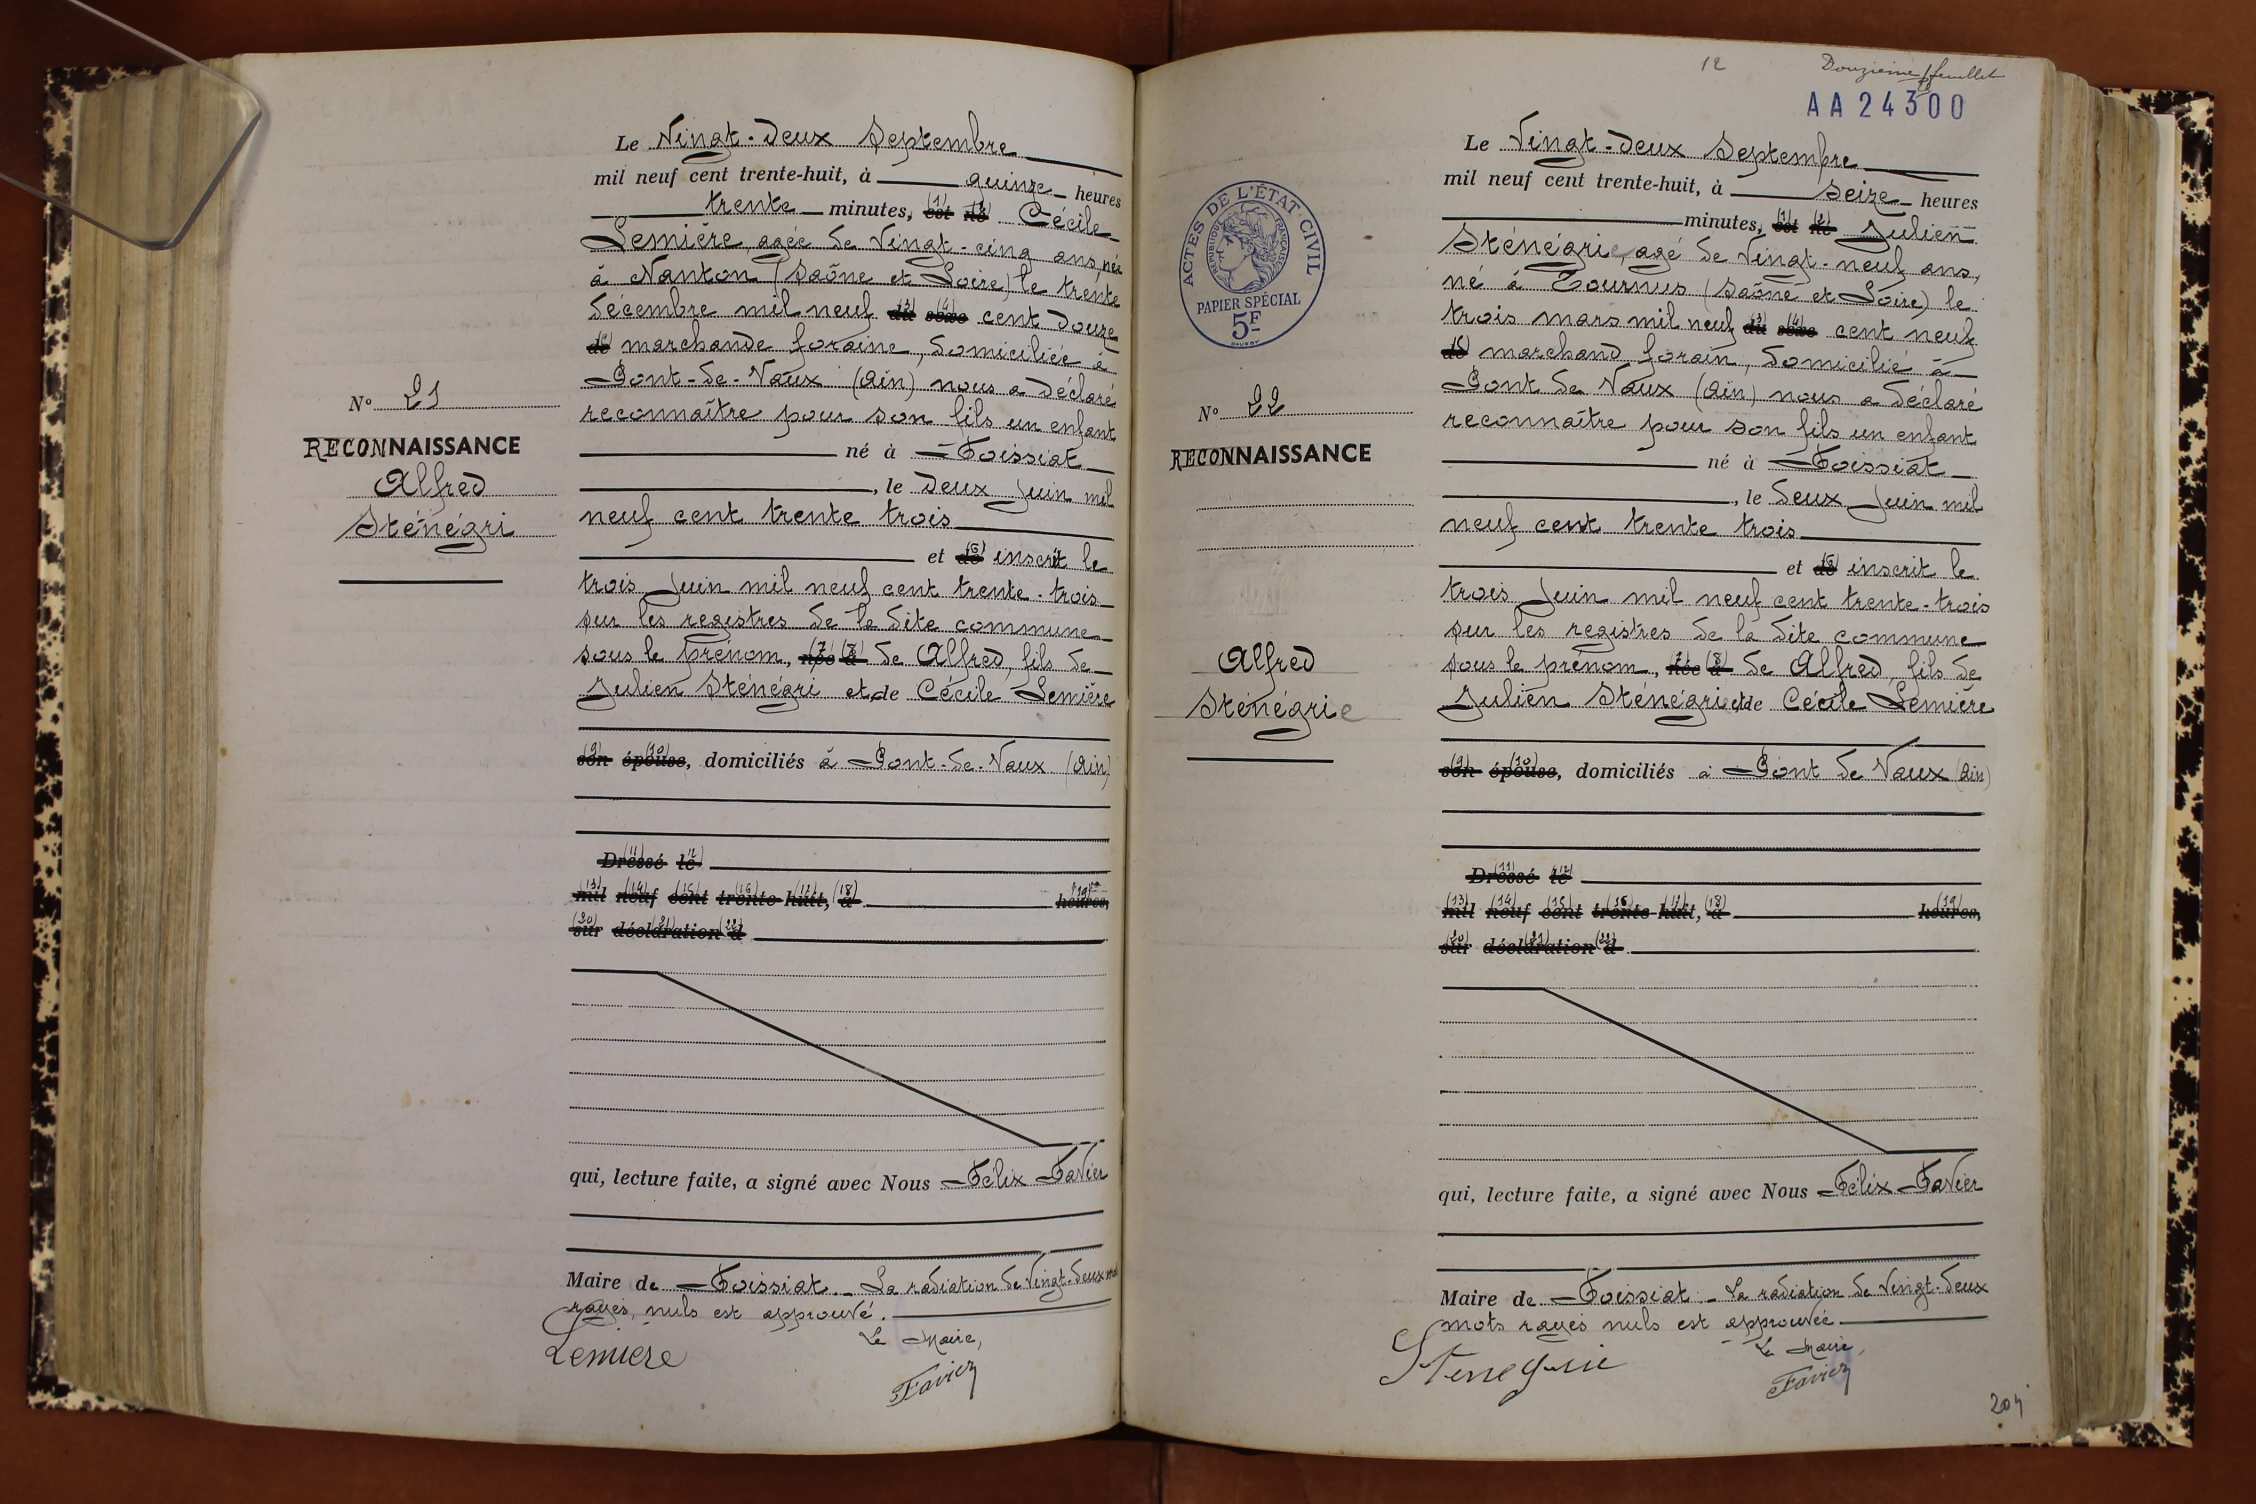 Le Vingt-deux Septembre
mil neuf cent trente-huit, à quinze heures
trente minutes, (1) est (2) né Cécile
Lemière, agée de Vingt-cinq ans, née
à Nanton (Saône et Loire) le trente
décembre mil neuf (3) du (4) sexe cent douze
de marchande foraine, domiciliée à
Pont-de-Vaux (Ain) nous a déclaré
reconnaître pour son fils un enfant
né à Foissiat
, le deux Juin mil
neuf cent trente trois
et (6) de inscrit le
trois Juin mil neuf cent trente-trois
sur les registres de la dite commune
sous le prénom, (7) née (8) à de Alfred, fils de
Julien Sténégri et de Cécile Lemière
(9) son (10) épouse, domiciliés à Pont-de-Vaux (Ain)
(11) Dressé (12) le
(13) mil (14) neuf (15) cent (16) trente-(17) huit, (18) à (19) heures,
(20) sur (21) déclaration (22) d
qui, lecture faite, a signé avec Nous Félix Favier
Maire de Foissiat. La radiation de Vingt-deux mots
rayés, nuls est approuvé.
Le Maire,
Lemiere
Favier
N° 21
RECONNAISSANCE
Alfred
Sténégri
12
Douzième feuillet
AA 24300
ACTES DE L'ÉTAT-CIVIL
RÉPUBLIQUE FRANÇAISE
PAPIER SPÉCIAL
5F
Le Vingt-deux Septembre
mil neuf cent trente-huit, à seize heures
minutes, (1) est (2) né Julien
Sténégrie, agé de Vingt-neuf ans,
né à Tournus (Saône et Loire) le
trois mars mil neuf (3) du (4) sexe cent neuf
de marchand forain, domicilié à
Pont de Vaux (Ain) nous a déclaré
reconnaître pour son fils un enfant
né à Foissiat
, le deux Juin mil
neuf cent trente trois
et (6) de inscrit le
trois Juin mil neuf cent trente-trois
sur les registres de la dite commune
sous le prénom, (7) née (8) à de Alfred, fils de
Julien Sténégrie et de Cécile Lemière
(9) son (10) épouse, domiciliés à Pont de Vaux (Ain)
(11) Dressé (12) le
(13) mil (14) neuf (15) cent (16) trente-(17) huit, (18) à (19) heures,
(20) sur (21) déclaration (22) d
qui, lecture faite, a signé avec Nous Félix Favier
Maire de Foissiat - La radiation de Vingt-deux
mots rayés nuls est approuvée
Le Maire,
Stenegrie
Favier
N° 22
RECONNAISSANCE
Alfred
Sténégrie
204